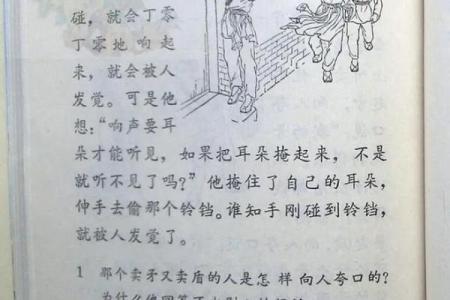 碰，就会丁零
丁零地响起
来，就会被人
发觉。可是他
想：“响声要耳
朵才能听见，如果把耳朵掩起来，不是
就听不见了吗？”他掩住了自己的耳朵，
伸手去偷那个铃铛。谁知手刚碰到铃铛，
就被人发觉了。
1 那个卖矛又卖盾的人是怎样向人夸口的？